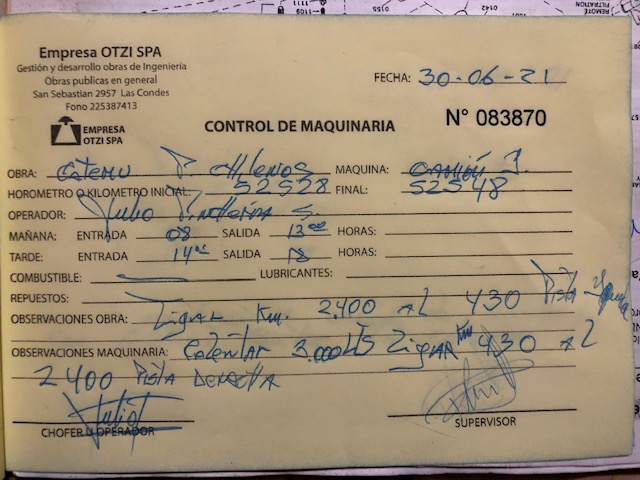 Empresa OTZI SPA
Gestión y desarrollo obras de Ingeniería
Obras publicas en general
San Sebastian 2957 Las Condes
Fono 225387413
FECHA: 30-06-21
EMPRESA
OTZI SPA
CONTROL DE MAQUINARIA
N° 083870
OBRA: MAQUINA: CAMIÓN
HOROMETRO O KILOMETRO INICIAL: 52528 FINAL: 52548
OPERADOR: Julio
MAÑANA: ENTRADA 08 SALIDA 13 00 HORAS:
TARDE: ENTRADA 14 00 SALIDA 18 HORAS:
COMBUSTIBLE: LUBRICANTES:
REPUESTOS:
OBSERVACIONES OBRA: Ligar Km. 2.400 AL 430 Pista
OBSERVACIONES MAQUINARIA: 3.000 Lts Ligar Km 430 AL
2400 Pista Derecha
CHOFER U OPERADOR
SUPERVISOR